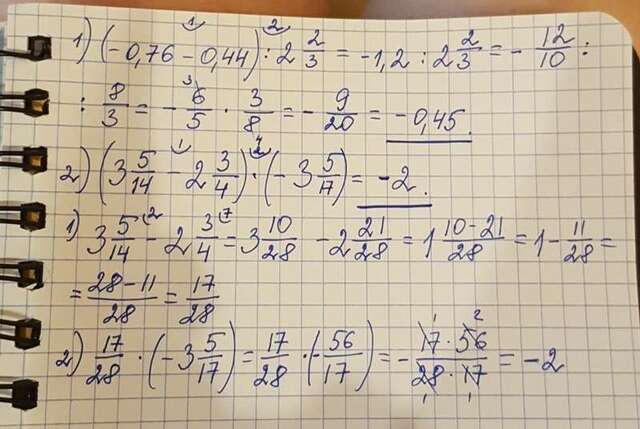 1) (-0,76 - 0,44) : 2 2/3 = -1,2 : 2 2/3 = - 12/10 :
: 8/3 = - 6/5 · 3/8 = - 9/20 = -0,45.
2) (3 5/14 - 2 3/4) · (-3 5/17) = -2.
1) 3 5/14 - 2 3/4 = 3 10/28 - 2 21/28 = 1 10-21/28 = 1 - 11/28 =
= 28-11/28 = 17/28
2) 17/28 · (-3 5/17) = 17/28 · (- 56/17) = - 17·56/28·17 = -2